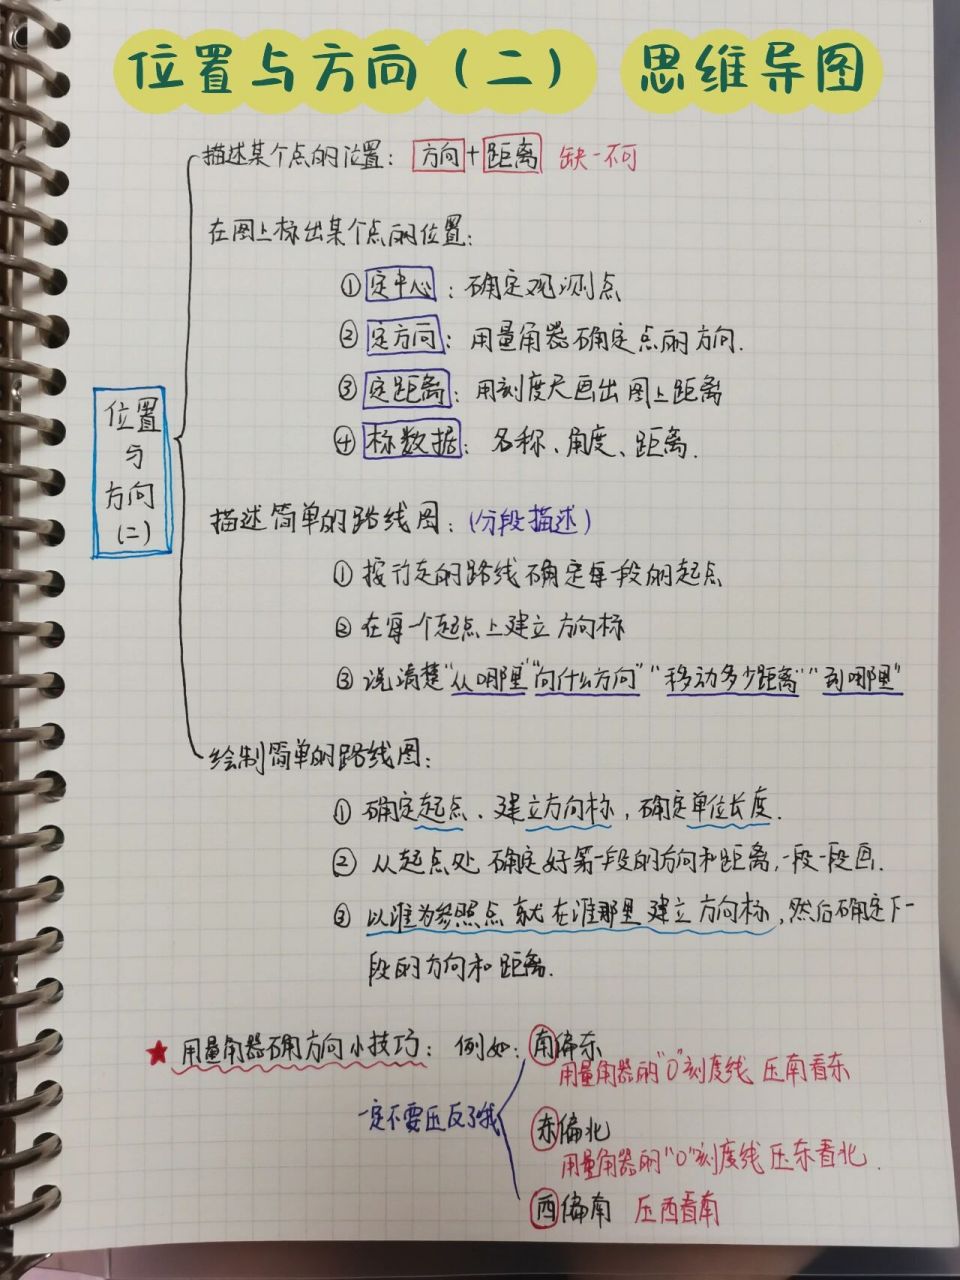 位置与方向（二） 思维导图
描述某个点的位置：方向+距离 缺一不可
在图上标出某个点的位置：
①定中心：确定观测点
②定方向：用量角器确定点的方向.
③定距离：用刻度尺画出图上距离
④标数据：名称、角度、距离.
位置
与
方向
（二）
描述简单的路线图：（分段描述）
①按行走的路线确定每一段的起点
②在每一个起点上建立方向标
③说清楚“从哪里”“向什么方向”“移动多少距离”“到哪里”
绘制简单的路线图：
①确定起点、建立方向标，确定单位长度.
②从起点处确定好第一段的方向和距离,一段一段画.
③以谁为参照点就在谁那里建立方向标,然后确定下一
段的方向和距离.
★用量角器确方向小技巧：例如：南偏东
用量角器的“0”刻度线 压南看东
一定不要压反了哦
东偏北
用量角器的“0”刻度线 压东看北.
西偏南 压西看南